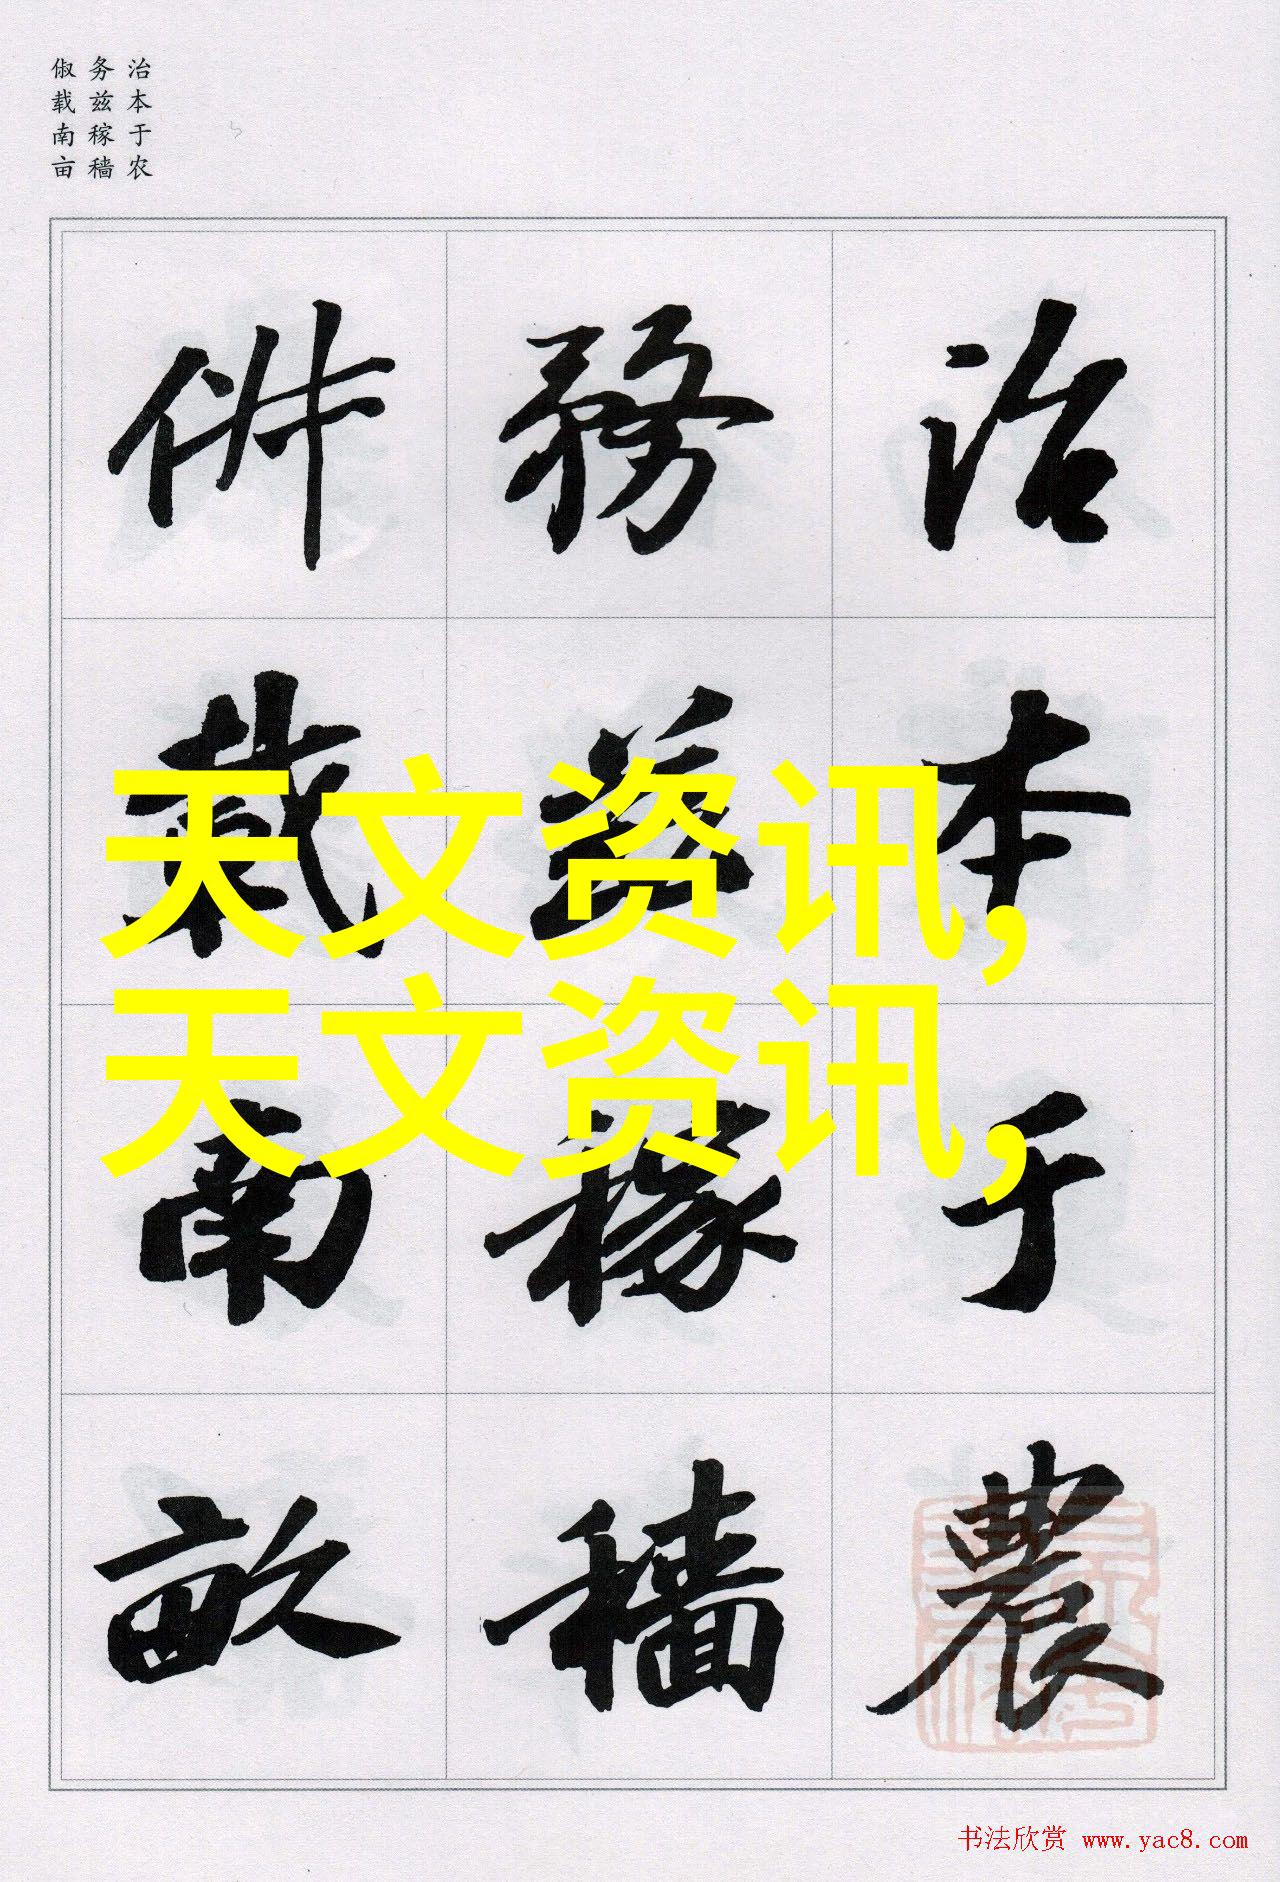 治本于农
务兹稼穑
俶载南亩
治本于農
務茲稼穡
俶載南畝
天文资讯,
天文资讯,
书法欣赏 www.yac8.com